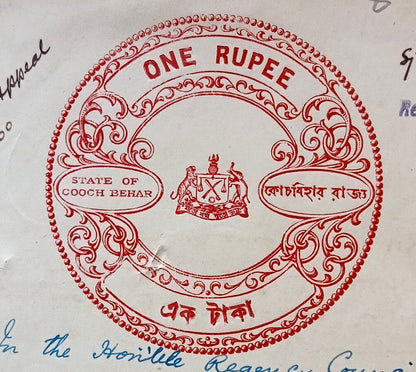 Appeal
ONE RUPEE
STATE OF
COOCH BEHAR
কোচবিহার রাজ্য
এক টাকা
In the Hon'ble Regency Counci